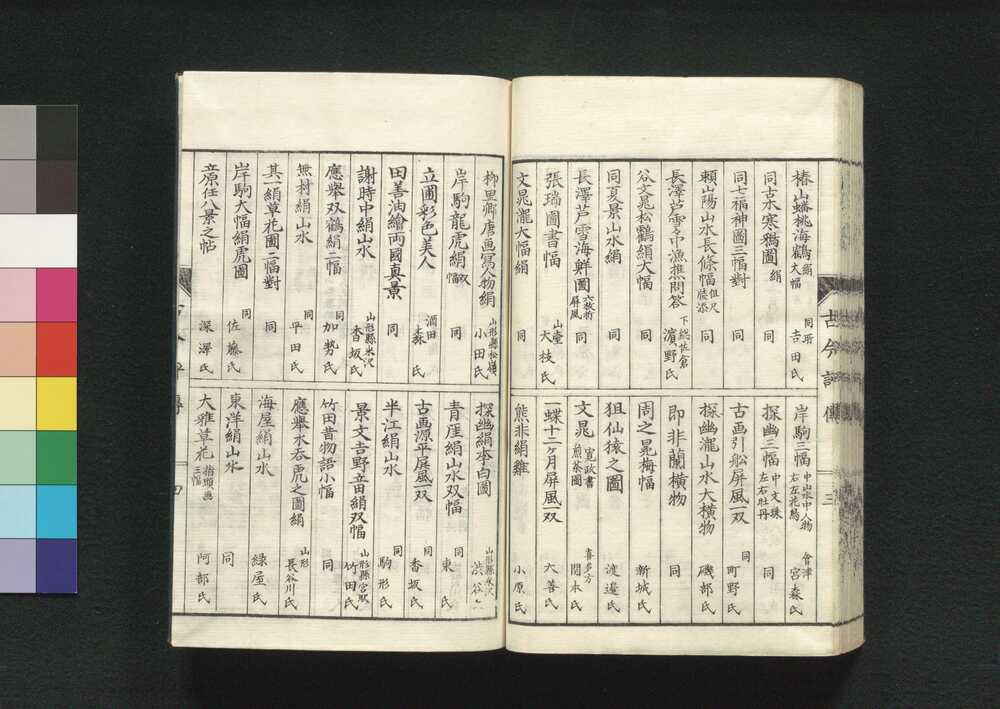 椿山蟠桃海鶴 絹大幅 同 塔 吉田氏
同古木寒鴉圖 絹 同
同七福神圖三幅對 同
頼山陽山水長條幅 同
長澤芦雪々中漁樵問答 下総佐倉 濵野氏
谷文晁松鶴絹大幅 同
同夏景山水絹 同
長澤芦雪海鮮圖 六枚折屏風 同
張瑞圖書幅 山童 大枝氏
文晁瀧大幅絹 同
岸駒三幅 中山水中人物右左花鳥 會津 宮森氏
探幽三幅 中文珠左右牡丹 同
古画引舩屏風一双 同 町野氏
探幽瀧山水大横物 磯部氏
即非蘭横物 同
周之冕梅幅 新城氏
狙仙猿之圖 渡邉氏
文晁 寛政書煎茶圖 喜多方 関本氏
一蝶十二ヶ月屏風一双 大善氏
熊非絹雞 小原氏
古今記傳 三
柳里卿唐画寫人物絹 山形縣松嶺 小田氏
岸駒龍虎絹双幅 同
立圃彩色美人 酒田 森氏
田善油繪両國真景 同
謝時中絹山水 山形縣米沢 香坂氏
應舉双鶴絹二幅 同 加勢氏
無村絹山水 同 平田氏
其一絹草花圖二幅對 同
岸駒大幅絹虎圖 同 佐藤氏
立原任八景之帖 深澤氏
探幽絹李白圖 山形縣米沢 渋谷〃
青厓絹山水双幅 同 東氏
古画源平屏風一双 同 香坂氏
半江絹山水 同 駒形氏
景文吉野立田絹双幅 山形縣宮取 竹田氏
竹田昔物語小幅 同
應舉水呑虎之圖絹 山形 長谷川氏
海屋絹山水 緑屋氏
東洋絹山水 同
大雅草花 指頭画三幅 阿部氏
四